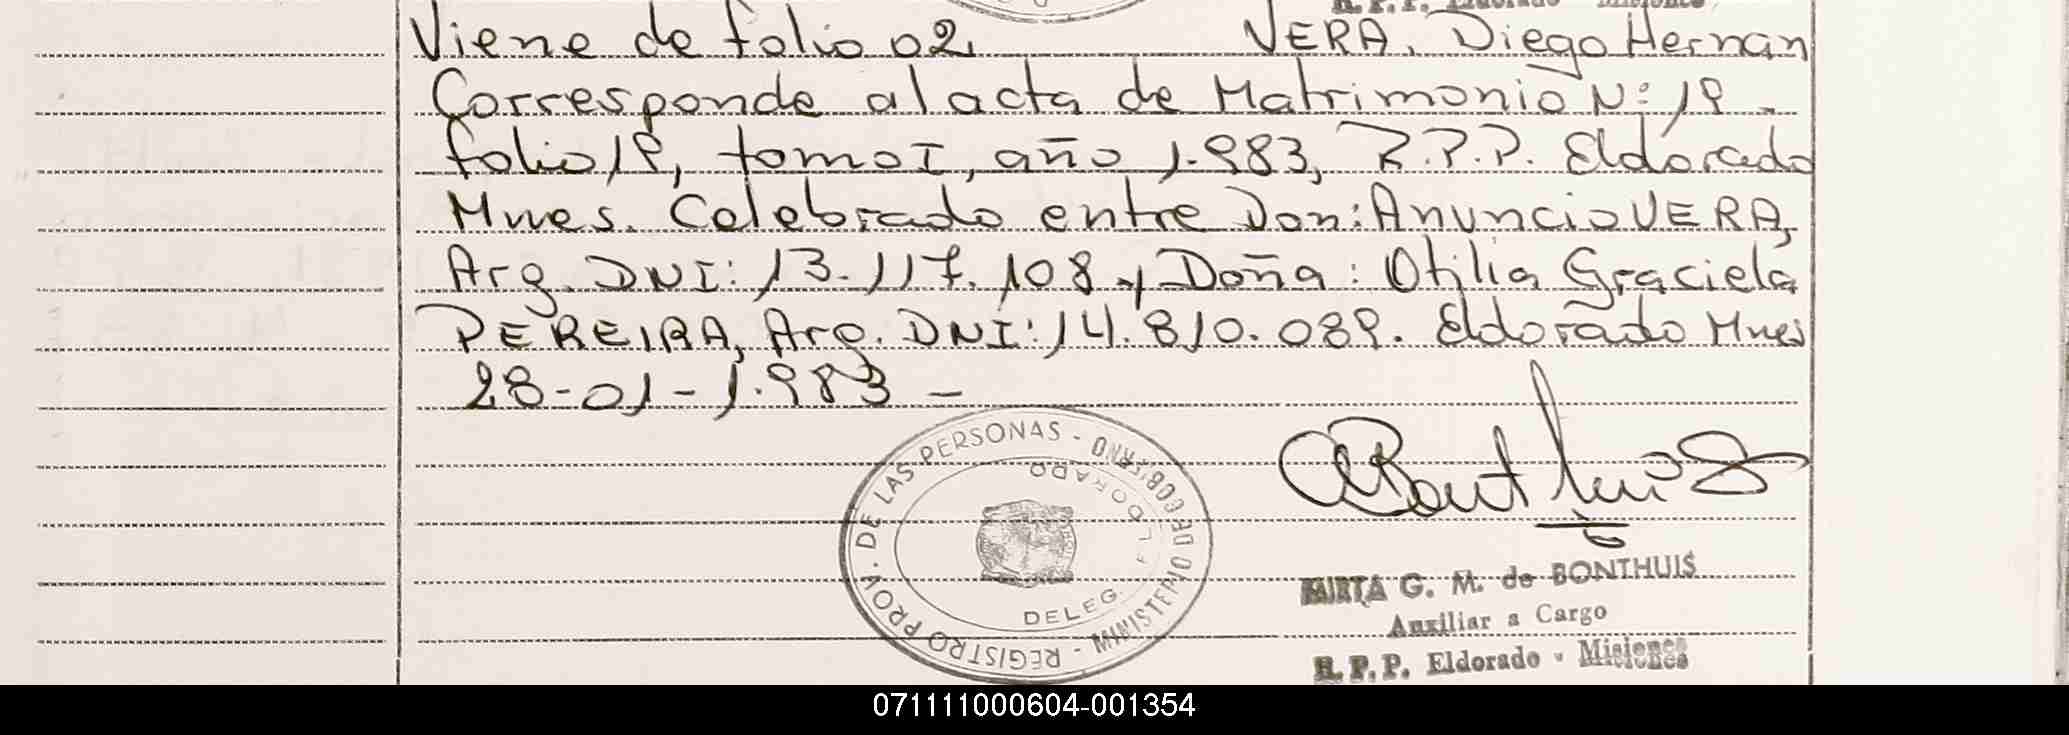 Viene de folio 02 VERA, Diego Hernan
Corresponde al acta de Matrimonio N: 19 -
folio 19, tomo I, año 1.983, R.P.P. Eldorado
Mnes. Celebrado entre Don: Anuncio VERA,
Arg. DNI: 13.117.108 y Doña: Otilia Graciela
PEREIRA, Arg. DNI: 14.810.089. Eldorado Mnes
28-01-1.983 -
REGISTRO PROV. DE LAS PERSONAS - MINISTERIO DE GOBIERNO
DELEG. ELDORADO
MIRTA G. M. de BONTHUIS
Auxiliar a Cargo
R. P. P. Eldorado - Misiones
071111000604-001354